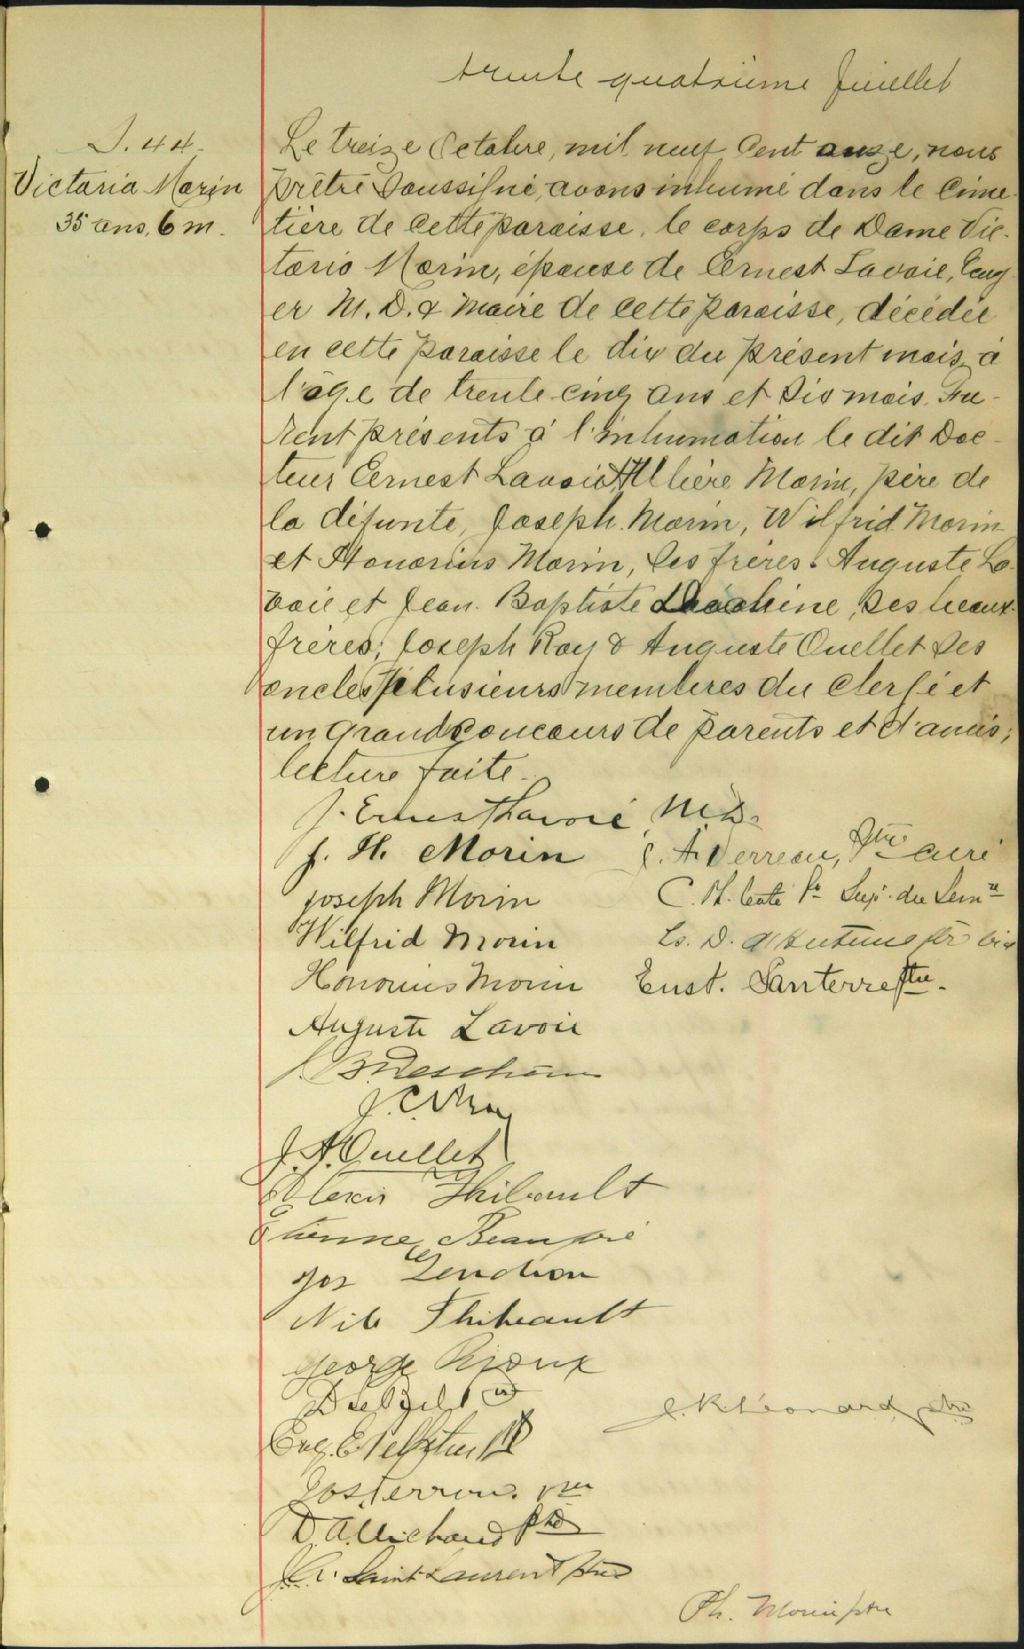 trente quatrième feuillet
S. 44.
Victoria Morin
35 ans, 6 m.
Le treize Octobre, mil neuf cent onze, nous
prêtre soussigné, avons inhumé dans le cime-
tière de cette paroisse, le corps de Dame Vic-
toria Morin, épouse de Ernest Lavoie, Ecuy-
er M. D. & Maire de cette paroisse, décédée
en cette paroisse le dix du présent mois, à
l'âge de trente-cinq ans et six mois. Fu-
rent présents à l'inhumation le dit Doc-
teur Ernest Lavoie, Morin, père de
la défunte, Joseph Morin, Wilfrid Morin
et Honorius Morin, ses frères. Auguste La-
voie et Jean-Baptiste ses beaux-
frères, Joseph Roy & Auguste Ouellet ses
oncles, plusieurs membres du clergé et
un grand concours de parents et d'amis;
lecture faite.
J. Ernest Lavoie, M.D.
J. H. Morin
J. A. Verreau, Ptre curé
Joseph Morin
C. Ph. Sup. du Semre
Wilfrid Morin
Ls. D.
Honorius Morin
Eust. Santerre ptre.
Auguste Lavoie
J. B. Deschênes
J. C. Roy
J. A. Ouellet
Alexis Thibault
Etienne Beaupré
Jos Gendron
Nil Thibeault
George Rioux
J. R. Léonard, ptre
Eug. E. Pelletier
Jos. ptre
D. A. Michaud ptre
J. A. Saint-Laurent ptre
Ph. Morin ptre